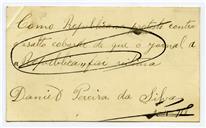 Como Republicano protesto contra
assalto cobarde de que o jornal a
"Republica" foi victima
Daniel Pereira da Silva